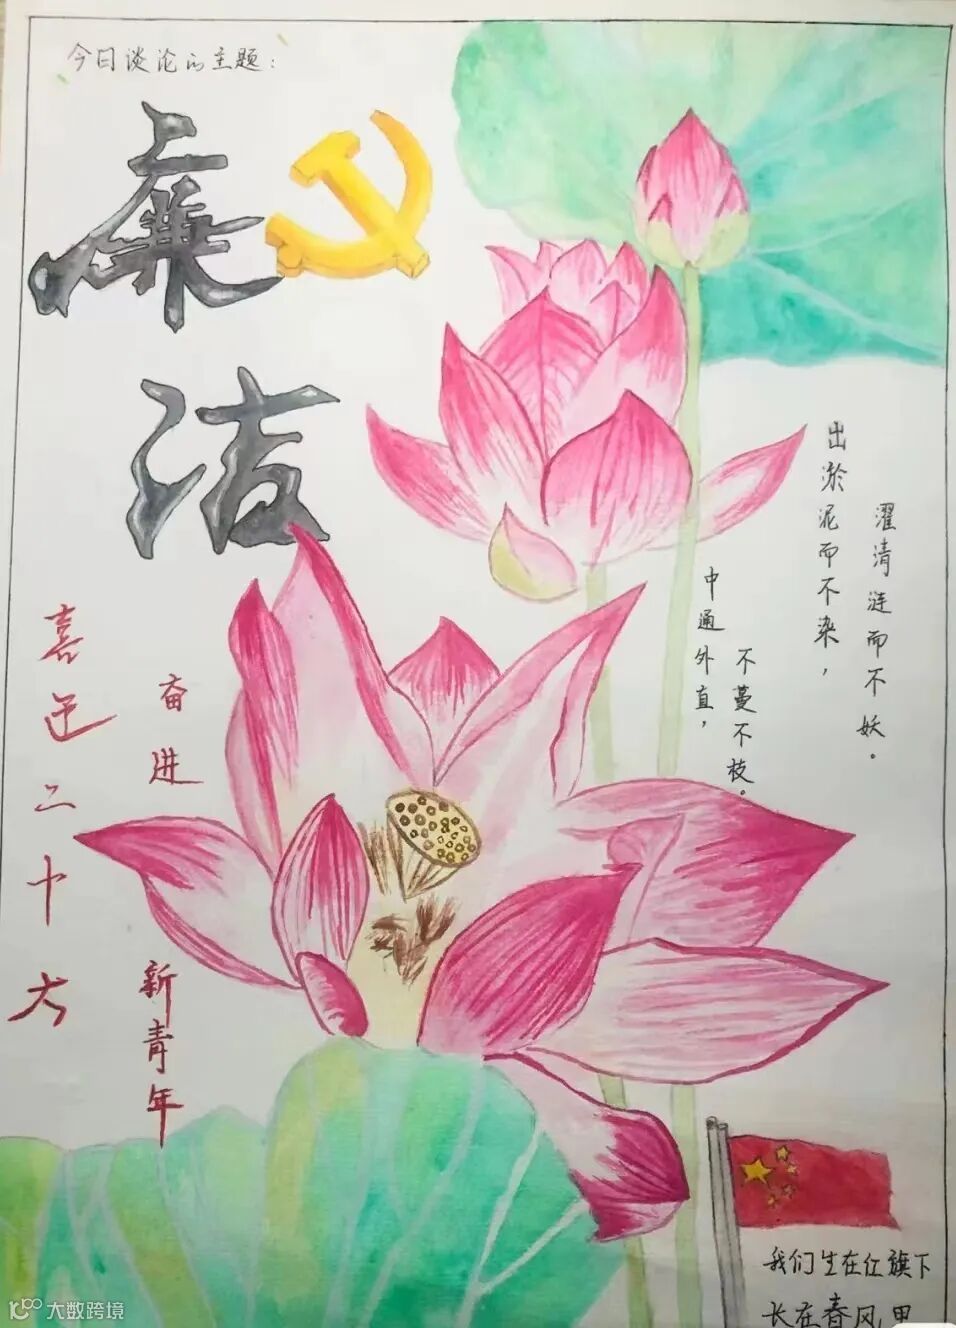 今日谈论的主题：
廉洁
出淤泥而不染，
濯清涟而不妖。
中通外直，
不蔓不枝。
喜迎二十大
奋进
新青年
我们生在红旗下
长在春风里
大数跨境